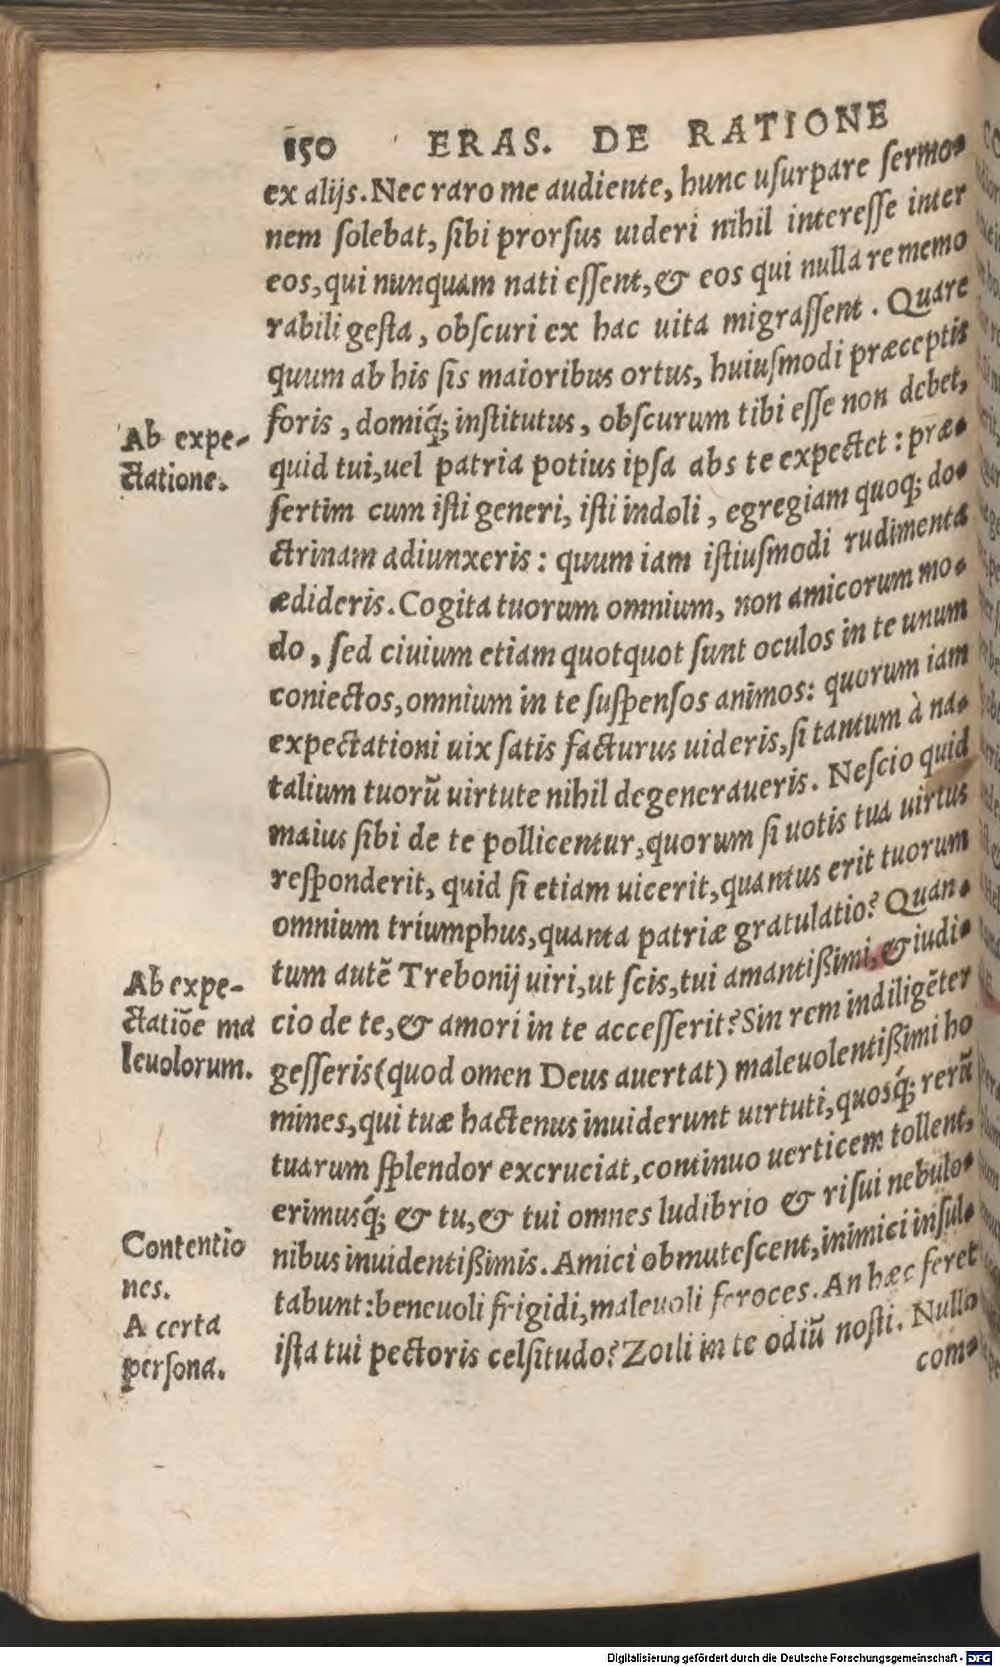 150 ERAS. DE RATIONE
ex alijs. Nec raro me audiente, hunc uſurpare ſermo-
nem ſolebat, ſibi prorſus uideri nihil intereſſe inter
eos, qui nunquam nati eſſent, & eos qui nulla re memo
rabili geſta, obſcuri ex hac uita migraſſent. Quare
quum ab his ſis maioribus ortus, huiuſmodi præceptis
foris, domiq́; inſtitutus, obſcurum tibi eſſe non debet,
Ab expe-
ctatione.
quid tui, uel patria potius ipſa abs te expectet: præ-
ſertim cum iſti generi, iſti indoli, egregiam quoq; do-
ctrinam adiunxeris: quum iam iſtiuſmodi rudimenta
ædideris. Cogita tuorum omnium, non amicorum mo-
do, ſed ciuium etiam quotquot ſunt oculos in te unum
coniectos, omnium in te ſuſpenſos animos: quorum iam
expectationi uix ſatis facturus uideris, ſi tantum à na-
talium tuorũ uirtute nihil degeneraueris. Neſcio quid
maius ſibi de te pollicentur, quorum ſi uotis tua uirtus
reſponderit, quid ſi etiam uicerit, quantus erit tuorum
omnium triumphus, quanta patriæ gratulatio? Quan-
tum autẽ Trebonij uiri, ut ſcis, tui amantißimi, & iudi-
Ab expe-
ctatiõe ma
leuolorum.
cio de te, & amori in te acceſſerit? Sin rem indiligẽter
geſſeris (quod omen Deus auertat) maleuolentißimi ho
mines, qui tuæ hactenus inuiderunt uirtuti, quosq́; rerũ
tuarum ſplendor excruciat, continuo uerticem tollent,
erimusq́; & tu, & tui omnes ludibrio & riſui nebulo-
Contentio
nes.
nibus inuidentißimis. Amici obmuteſcent, inimici inſul-
tabunt: beneuoli frigidi, maleuoli feroces. An hæc feret
A certa
perſona.
iſta tui pectoris celſitudo? Zoili in te odiũ noſti. Nullo
com-
Digitalisierung gefördert durch die Deutsche Forschungsgemeinschaft - DFG